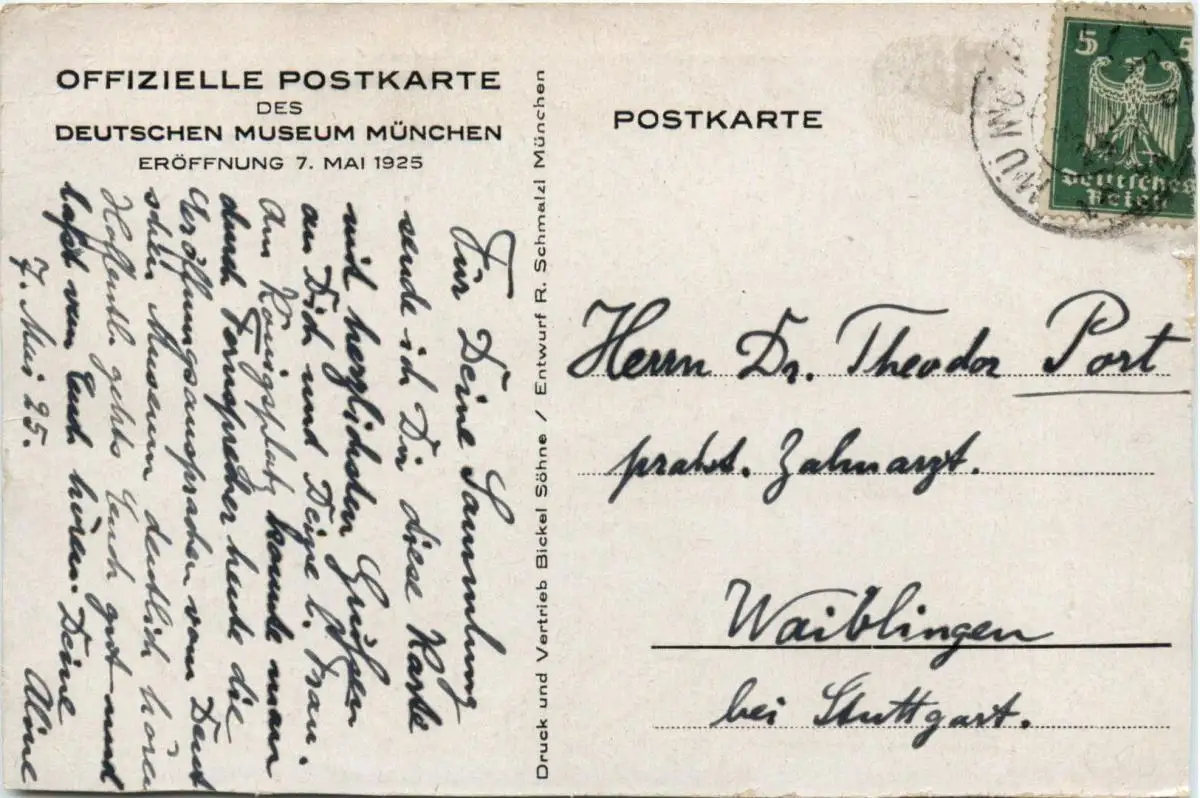 OFFIZIELLE POSTKARTE
DES
DEUTSCHEN MUSEUM MÜNCHEN
ERÖFFNUNG 7. MAI 1925
Für Deine Sammlung
sende ich Dir diese Karte
mit herzlichsten Grüßen
an Dich und Deine l. Frau.
Am Königsplatz konnte man
durch Fernsprecher heute die
Eröffnungsansprachen vom Deut
schen Museum deutlich hören
Hoffentl. gehts Euch gut und
laßt von Euch hören. Deine
7. Mai 25. Aline
Druck und Vertrieb Bickel Söhne / Entwurf R. Schmalzl München
POSTKARTE
5 5
Deutsches
Reich
MÜNCHEN
Herrn Dr. Theodor Port
prakt. Zahnarzt.
Waiblingen
bei Stuttgart.